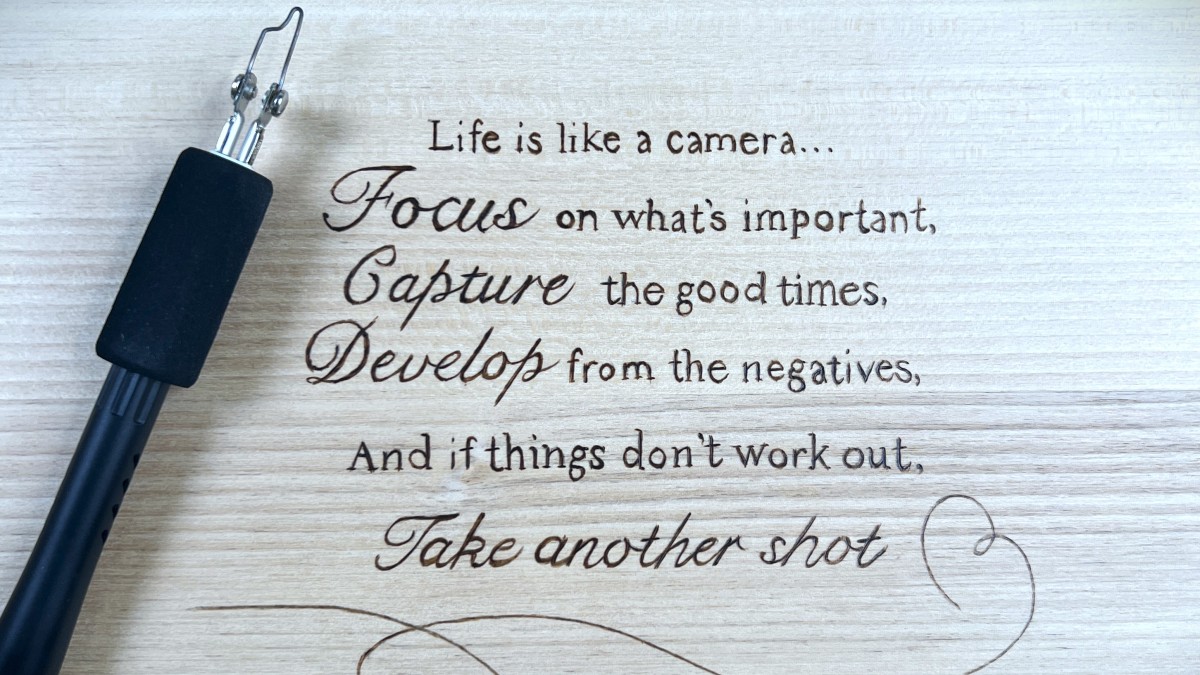 Life is like a camera...
Focus on what's important,
Capture the good times,
Develop from the negatives,
And if things don't work out,
Take another shot